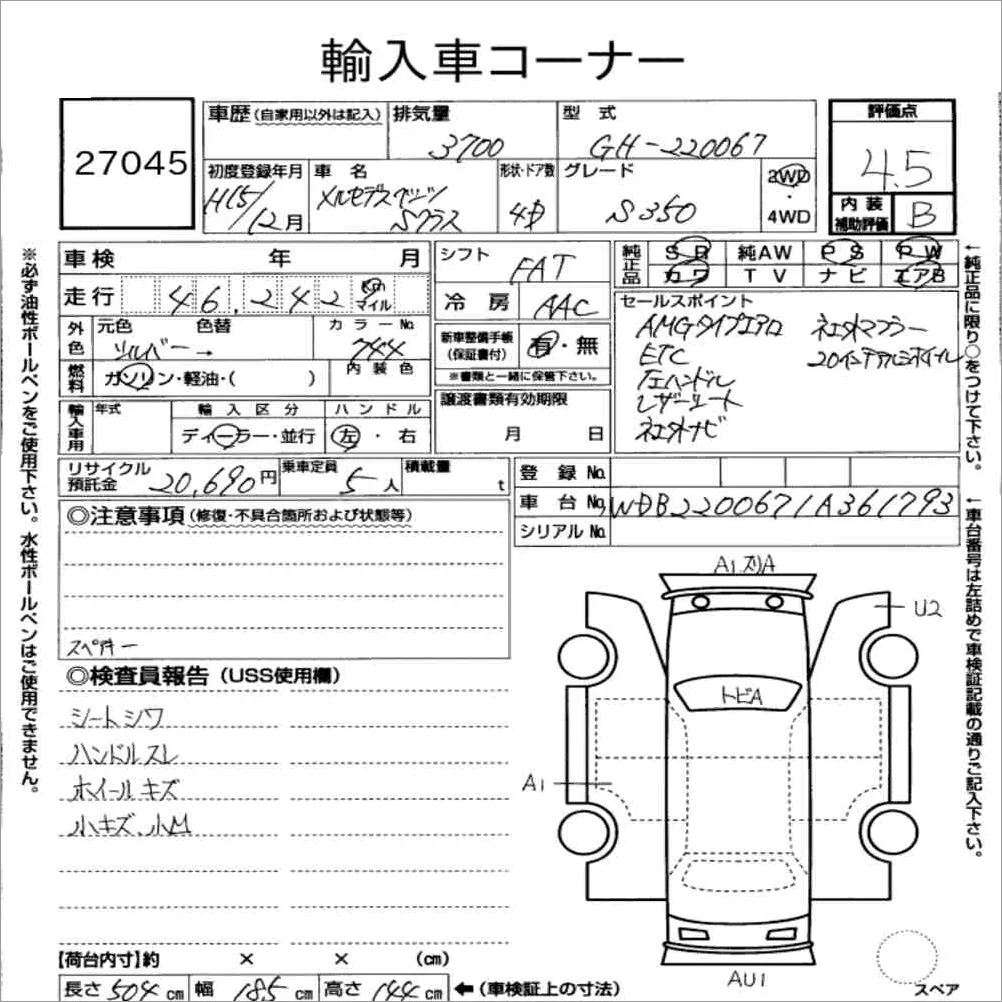 輸入車コーナー
27045
車歴(自家用以外は記入) 排気量 3700 型式 GH-220067 評価点 4.5
初度登録年月 H15/12月 車名 メルセデスベンツ Sクラス 形状・ドア数 4D グレード S350 2WD・4WD 内装補助評価 B
車検 年 月 シフト FAT 純正品 SR 純AW PS PW
カワ TV ナビ エアB
走行 46,242 Km マイル 冷房 AAC セールスポイント
外色 元色 色替 カラーNo. シルバー → 744 内装色
新車整備手帳(保証書付) 有・無
※書類と一緒に保管下さい。
AMGタイプエアロ 社外マフラー
ETC 20インチアルミホイル
左ハンドル
レザーシート
社外ナビ
燃料 ガソリン・軽油・( )
譲渡書類有効期限 月 日
輸入車用 年式 輸入区分 ハンドル
ディーラー・並行 左・右
リサイクル預託金 20,690円 乗車定員 5人 積載量 t
登録No.
車台No. WDB2200671A361793
シリアルNo.
◎注意事項(修復・不具合箇所および状態等)
スペアキー
◎検査員報告(USS使用欄)
シートシワ
ハンドルスレ
ホイールキズ
小キズ、小M
A1 スリA
U2
トビA
A1
AU1
スペア
【荷台内寸】約 × × (cm)
長さ 504 cm 幅 185 cm 高さ 144 cm ←(車検証上の寸法)
※必ず油性ボールペンをご使用下さい。水性ボールペンはご使用できません。
←純正品に限り○をつけて下さい。
←車台番号は左詰めで車検証記載の通りご記入下さい。